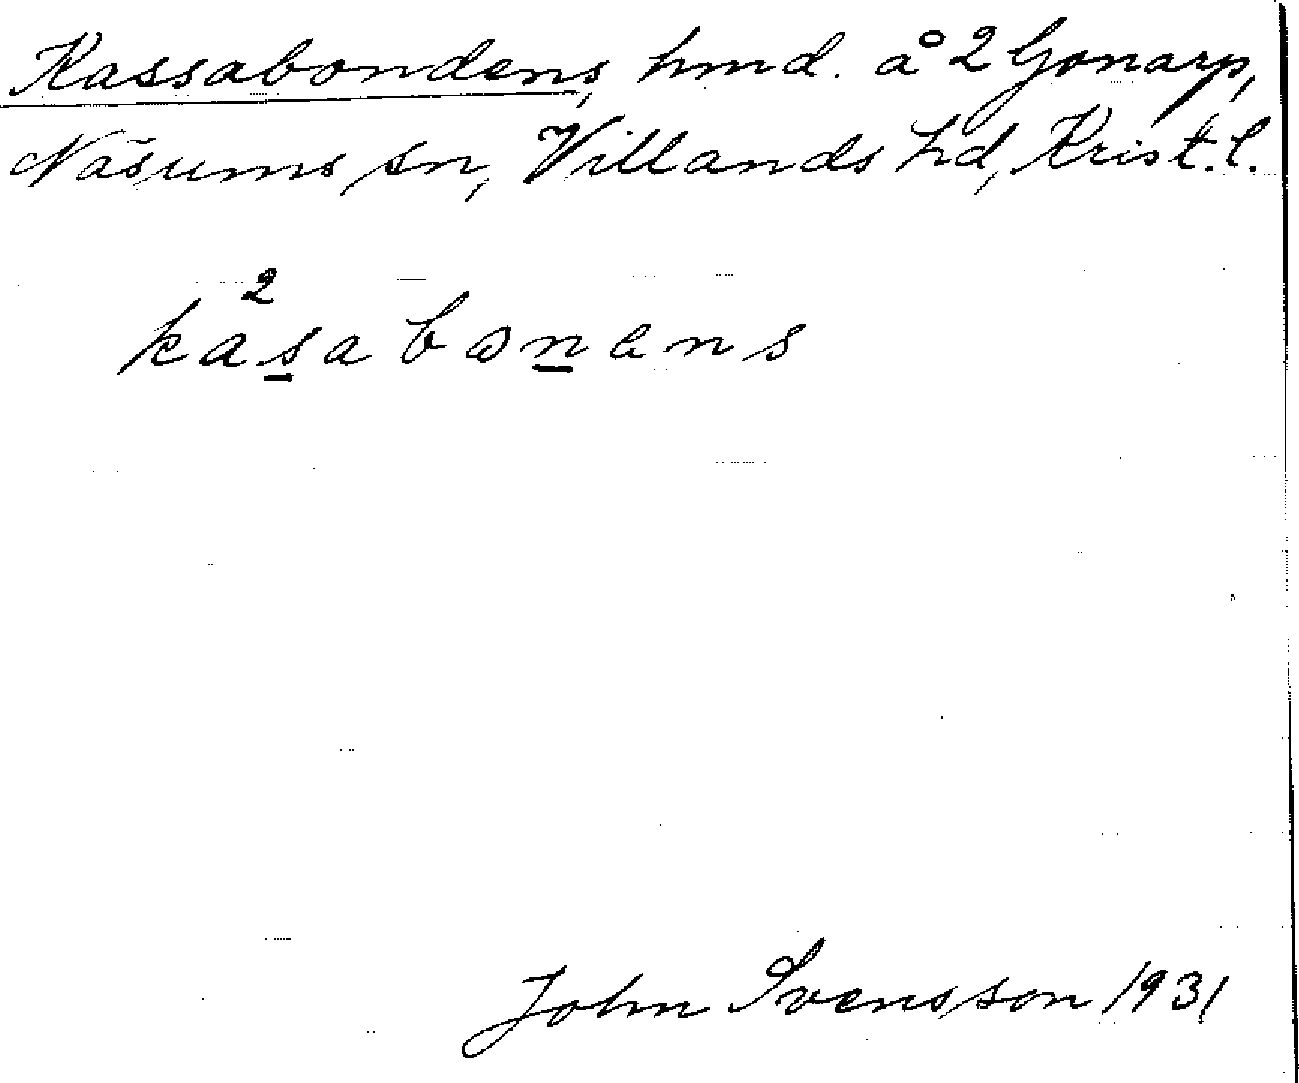 Kassabondens, hmd. å 2 Gonarp,
Näsums sn, Villands hd, Krist. l.
ka²sabɷnens
John Svensson 1931